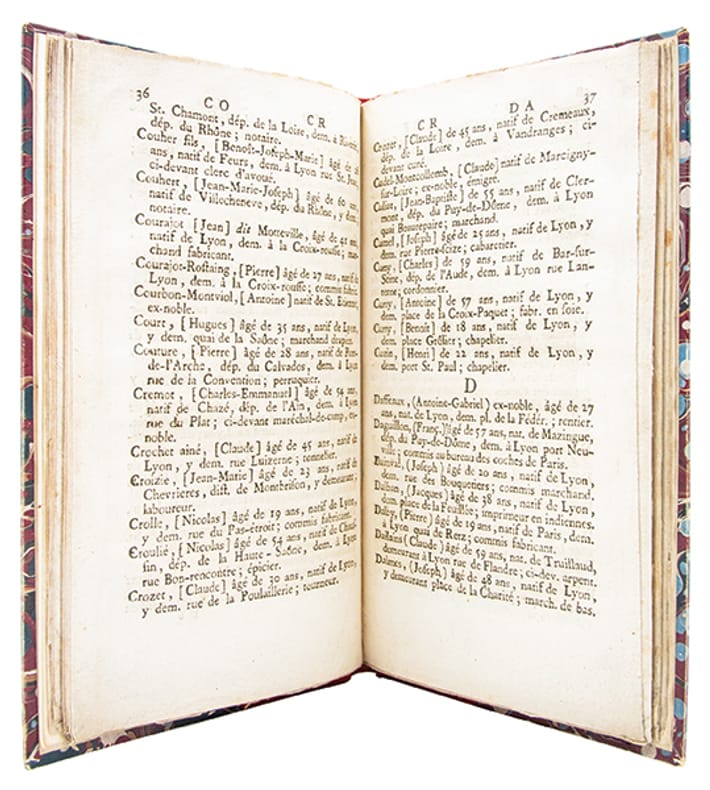 36
CO CR
St. Chamont, dép. de la Loire, dem. à
dép. du Rhône; notaire.
Couher fils, [Benoît-Joseph-Marie] âgé de
ans, natif de Feurs, dem. à Lyon rue St.
ci-devant clerc d'avoué.
Couhert, [Jean-Marie-Joseph] âgé de 60 ans,
natif de Villecheneve, dép. du Rhône, y dem.
notaire.
Courajot [Jean] dit Motteville, âgé de 41 ans,
natif de Lyon, dem. à la Croix-rousse; mar-
chand fabricant.
Courajot-Rostaing, [Pierre] âgé de 27 ans, natif de
Lyon, dem. à la Croix-rousse; commis fabric.
Courbon-Montviol, [Antoine] natif de St. Etienne,
ex-noble.
Court, [Hugues] âgé de 35 ans, natif de Lyon,
y dem. quai de la Saône; marchand drapier.
Couture, [Pierre] âgé de 28 ans, natif de Pont-
de-l'Arche, dép. du Calvados, dem. à Lyon
rue de la Convention; perruquier.
Cremot, [Charles-Emmanuel] âgé de 54 ans,
natif de Chazé, dép. de l'Ain, dem. à Lyon
rue du Plat; ci-devant maréchal-de-camp, ex-
noble.
Crochet ainé, [Claude] âgé de 45 ans, natif de
Lyon, y dem. rue Luizerne; tonnelier.
Croizie, [Jean-Marie] âgé de 23 ans, natif de
Chevrieres, dist. de Montbrison, y demeurant;
laboureur.
Crolle, [Nicolas] âgé de 19 ans, natif de Lyon,
y dem. rue du Pas-étroit; commis fabricant.
Croulié, [Nicolas] âgé de 54 ans, natif de
sin, dép. de la Haute-Saône, dem. à Lyon
rue Bon-rencontre; épicier.
Crozet, [Claude] âgé de 30 ans, natif de Lyon,
y dem. rue de la Poulaillerie; tourneur.
CR DA 37
Crozet, [Claude] de 45 ans, natif de Cremeaux,
dép. de la Loire, dem. à Vandranges; ci-
devant curé.
Cudel-Montcollomb, [Claude] natif de Marcigny-
sur-Loire; ex-noble, émigré.
[Jean-Baptiste] de 55 ans, natif de Cler-
mont, dép. du Puy-de-Dôme, dem. à Lyon
quai Beaurepaire; marchand.
[Joseph] âgé de 25 ans, natif de Lyon, y
dem. rue Pierre-scize; cabaretier.
Cuny, [Charles] de 59 ans, natif de Bar-sur-
Seine, dép. de l'Aude, dem. à Lyon rue Lan-
terne; cordonnier.
Cuny, [Antoine] de 57 ans, natif de Lyon, y
dem. place de la Croix-Paquet; fabr. en soie.
Cuny, [Benoît] de 18 ans, natif de Lyon, y
dem. place Grôlier; chapelier.
[Henri] de 22 ans, natif de Lyon, y
dem. port St. Paul; chapelier.
D
(Antoine-Gabriel) ex-noble, âgé de 27
ans, nat. de Lyon, dem. pl. de la Fédér.; rentier.
Daguillon, (Franç.) âgé de 57 ans, nat. de Mazingue,
dép. du Puy-de-Dôme, dem. à Lyon port Neu-
ville; commis au bureau des coches de Paris.
(Joseph) âgé de 20 ans, natif de Lyon,
dem. rue des Bouquetiers; commis marchand.
(Jacques) âgé de 38 ans, natif de Lyon,
dem. place de la Feuillée; imprimeur en indiennes.
(Pierre) âgé de 19 ans, natif de Paris, dem.
à Lyon quai de Retz; commis fabricant.
(Claude) âgé de 59 ans, nat. de Truillaud,
demeurant à Lyon rue de Flandre; ci-dev. arpent.
(Joseph) âgé de 48 ans, natif de Lyon,
y demeurant place de la Charité; march. de bas.